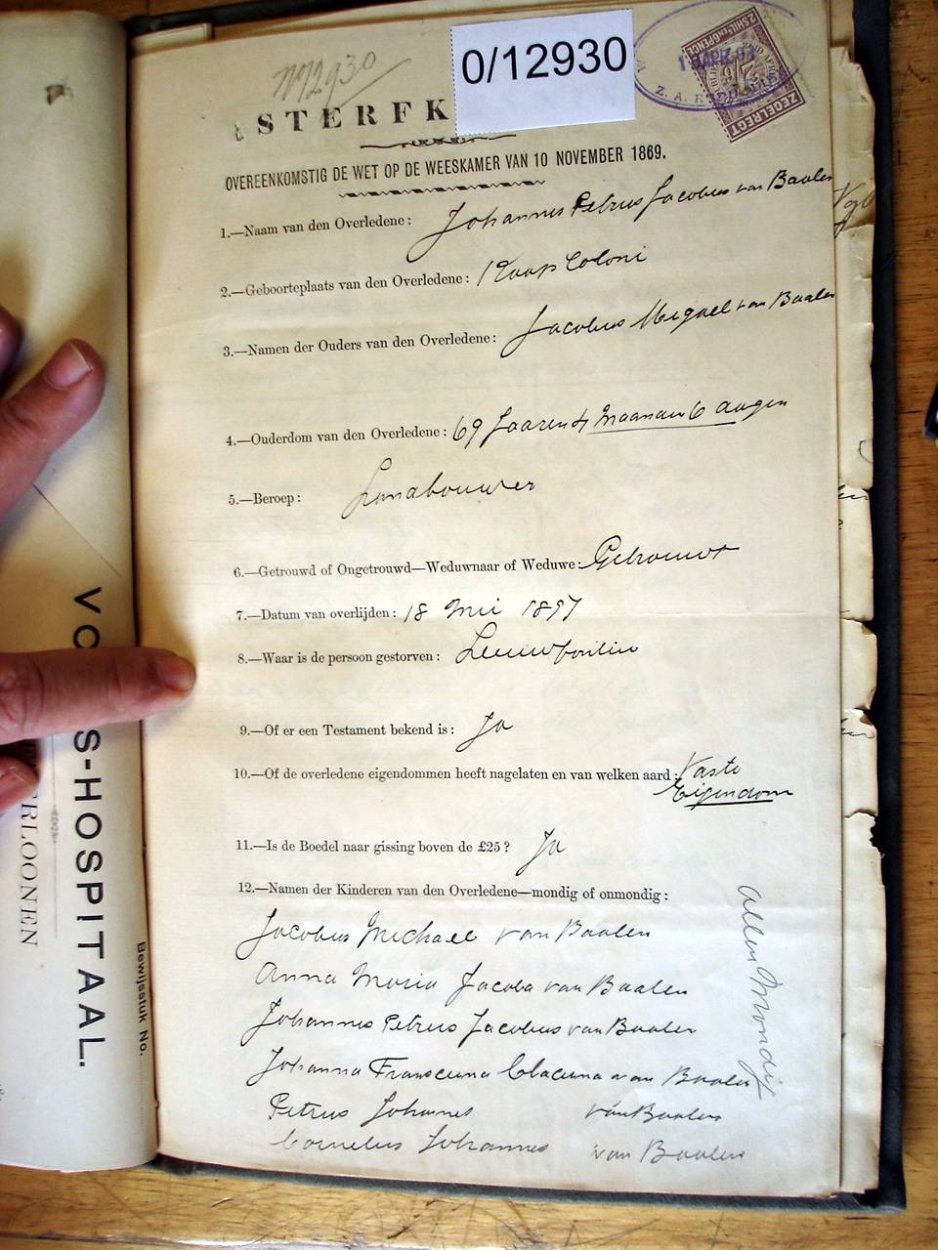 N12930
0/12930
2 SHIL. en 6 PENCE
ZEGELREGT
STERFK
OVEREENKOMSTIG DE WET OP DE WEESKAMER VAN 10 NOVEMBER 1869.
1.—Naam van den Overledene: Johannes Petrus Jacobus van Baalen
2.—Geboorteplaats van den Overledene: Kaap Coloni
3.—Namen der Ouders van den Overledene: Jacobus Migael van Baalen
4.—Ouderdom van den Overledene: 69 Jaaren 4 Maanan 6 dagen
5.—Beroep: Landbouwer
6.—Getrouwd of Ongetrouwd—Weduwnaar of Weduwe: Getrouwt
7.—Datum van overlijden: 18 Mei 1897
8.—Waar is de persoon gestorven: Leeuwfontein
9.—Of er een Testament bekend is: Ja
10.—Of de overledene eigendommen heeft nagelaten en van welken aard: Vaste
Eigendom
11.—Is de Boedel naar gissing boven de £25? Ja
12.—Namen der Kinderen van den Overledene—mondig of onmondig:
Jacobus Michael van Baalen
Anna Maria Jacoba van Baalen
Johannes Petrus Jacobus van Baalen
Johanna van Baalen
Petrus Johannes van Baalen
Cornelius Johannes van Baalen
Allen Mondig
S-HOSPITAAL.
RLOONEN
Bewijsstuk No.